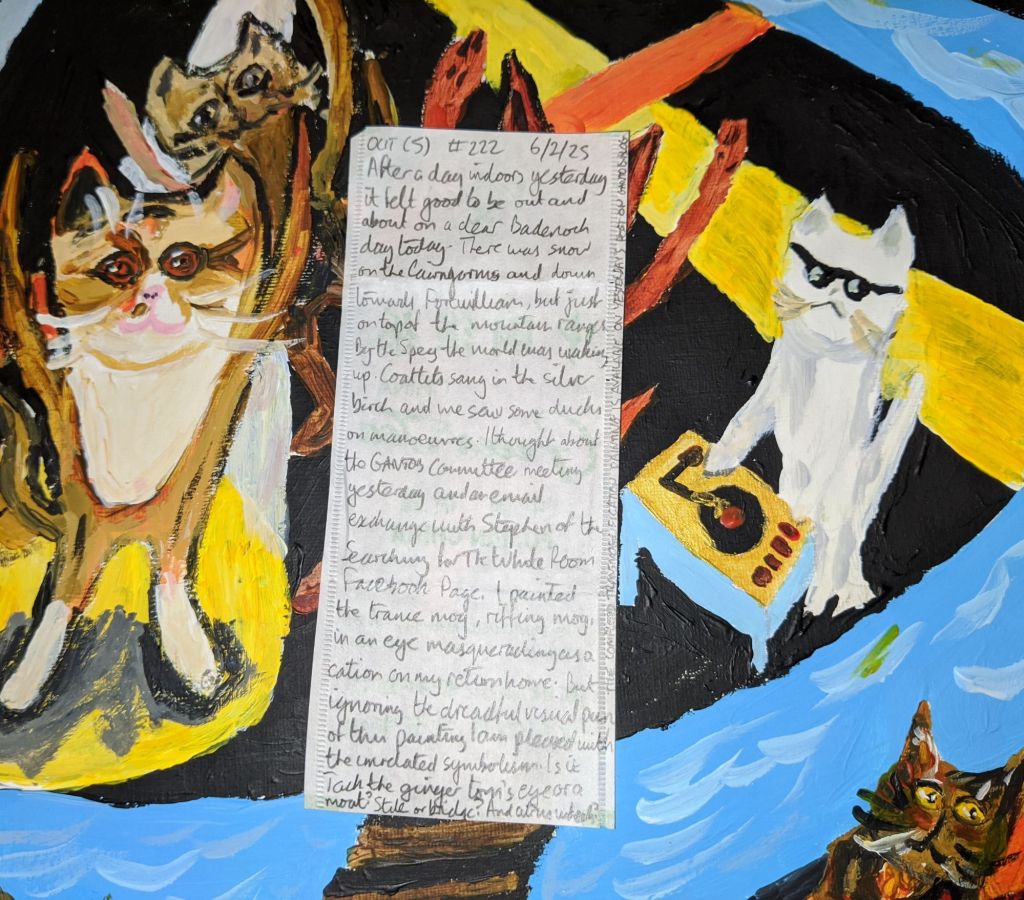 OUT (S) #222 6/2/25
After a day indoors yesterday
it felt good to be out and
about on a clear Badenoch
day today. There was snow
on the Cairngorms and down
towards Fortwilliam, but just
on top of the mountain ranges.
By the Spey the world was waking
up. Coaltets sang in the silver
birch and we saw some ducks
on manoeuvres. I thought about
the GANTOS Committee meeting
yesterday and an email
exchange with Stephen of the
Searching for The Whole Room
Facebook Page. I painted
the trance mog, riffing mog,
in an eye masquerading as a
cation on my return home. But
ignoring the dreadful visual pun
of this painting I am pleased with
the unrelated symbolism. Is it
Tach the ginger tom's eye or a
moat? Stile or bridge? And